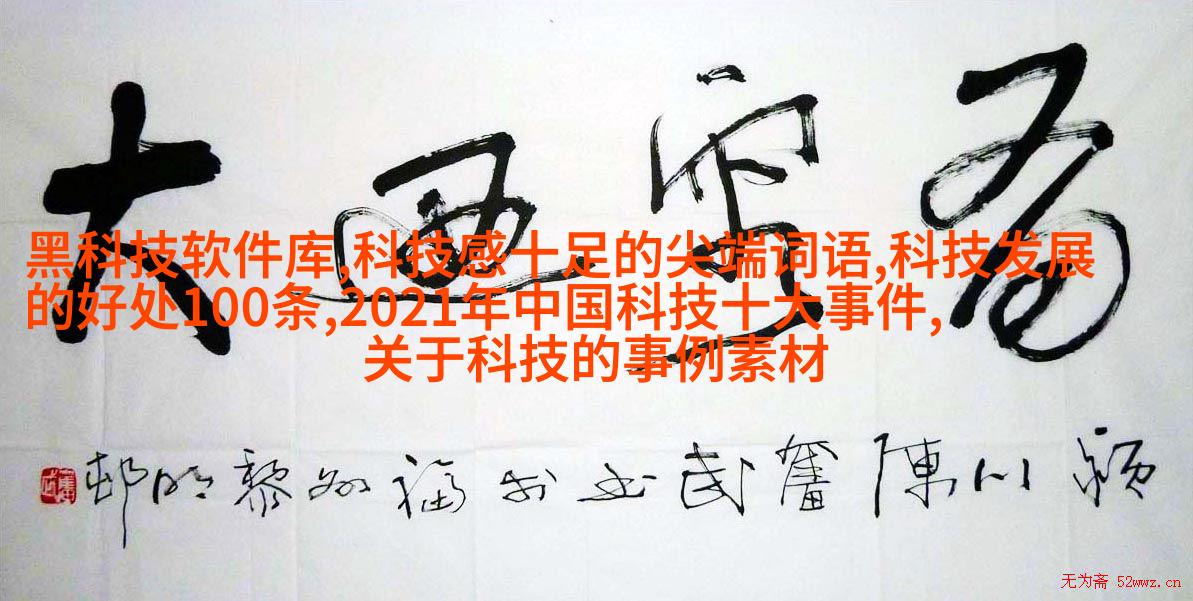 大
黑科技软件库,科技感十足的尖端词语,科技发展
的好处100条,2021年中国科技十大事件,
关于科技的事例素材
颍川陳奮武书於福州黎明邨
无为斋 52wwz.cn